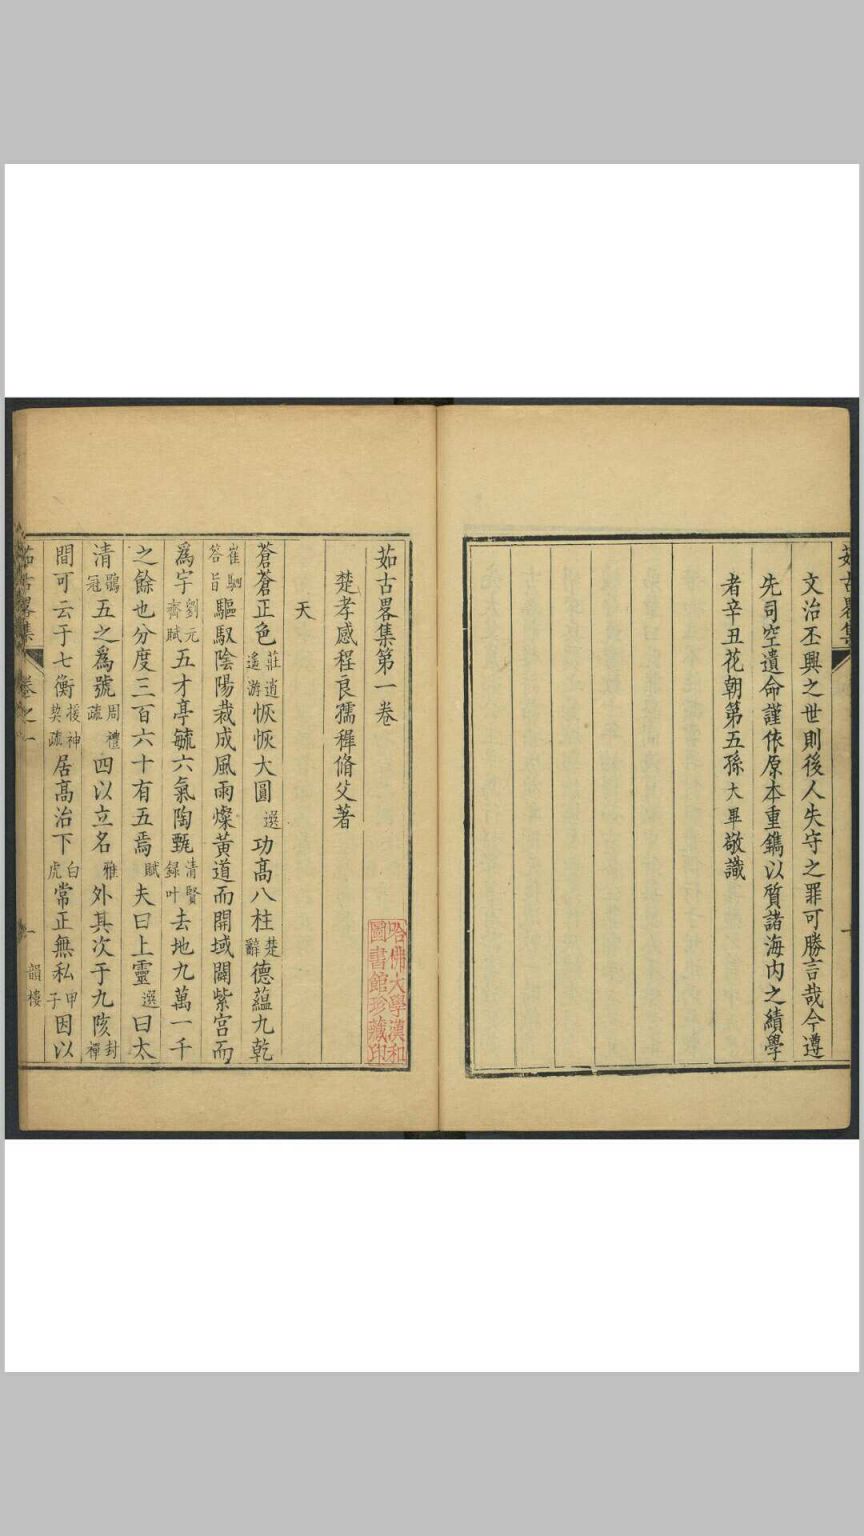 茹古畧集
文治丕興之世則後人失守之罪可勝言哉今遵
先司空遺命謹依原本重鐫以質諸海内之績學
者辛丑花朝第五孫大畢敬識
茹古畧集第一卷
楚孝感程良孺穉脩父著
天
蒼蒼正色莊逍遙游恢恢大圓選功高八柱楚辭德蘊九乾
崔駰答旨驅馭陰陽裁成風雨燦黃道而開域闢紫宮而
爲宇劉元齊賦五才亭毓六氣陶甄清賢録叶去地九萬一千
之餘也分度三百六十有五焉賦夫曰上靈選曰太
清鶡冠五之爲號周禮疏四以立名雅外其次于九陔封禪
間可云于七衡援神契疏居髙治下白虎常正無私甲子因以
茹古畧集
卷之一
一
韻樓
哈佛大學漢和
圖書館珍藏印